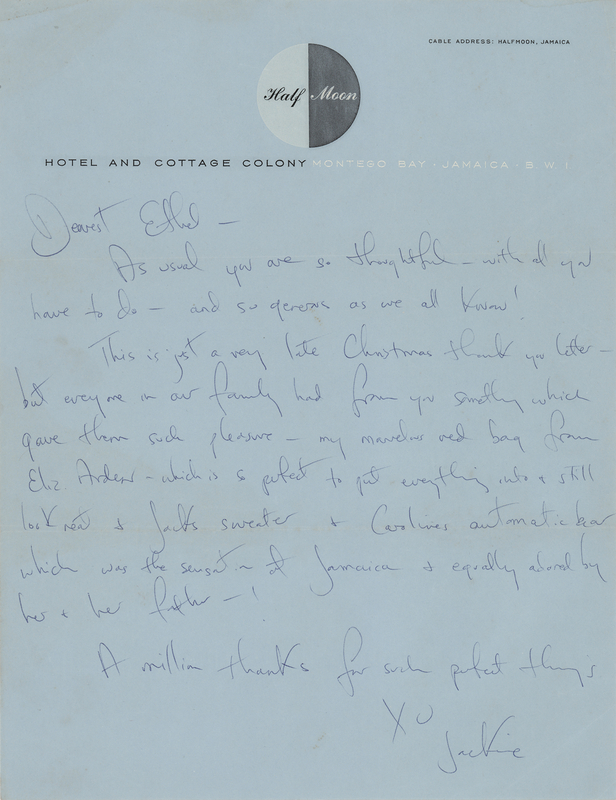 CABLE ADDRESS: HALFMOON, JAMAICA
Half Moon
HOTEL AND COTTAGE COLONY MONTEGO BAY · JAMAICA · B W I
Dearest Ethel –
As usual you are so thoughtful – with all you
have to do – and so generous as we all know!
This is just a very late Christmas thank you letter –
but everyone in our family had from you something which
gave them such pleasure – my marvelous red bag from
Eliz. Arden – which is so perfect to put everything into & still
look neat & Jacks sweater & Carolines automatic bear
which was the sensation of Jamaica & equally adored by
her & her father – !
A million thanks for such perfect things
XO
Jackie